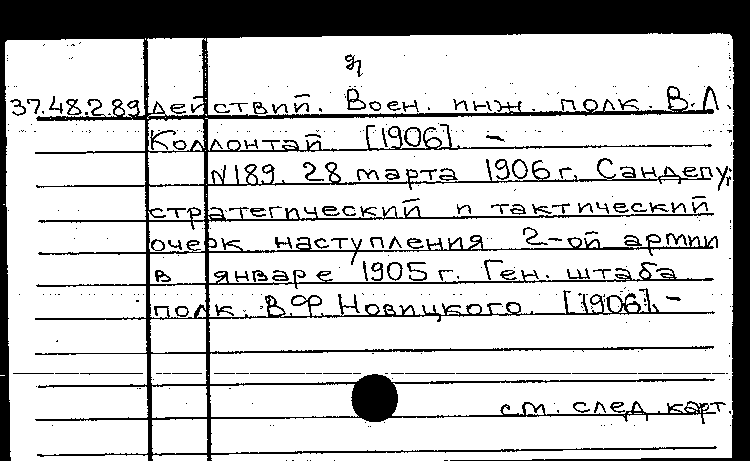 37.48.2.89 действий. Воен. инж. полк. В.Л.
Коллонтай [1906] –
N189. 28 марта 1906 г. Сандепу;
стратегический и тактический
очерк наступления 2-ой армии
в январе 1905 г. Ген. штаба
полк. В.Ф. Новицкого. [1906]. –
см. след. карт.